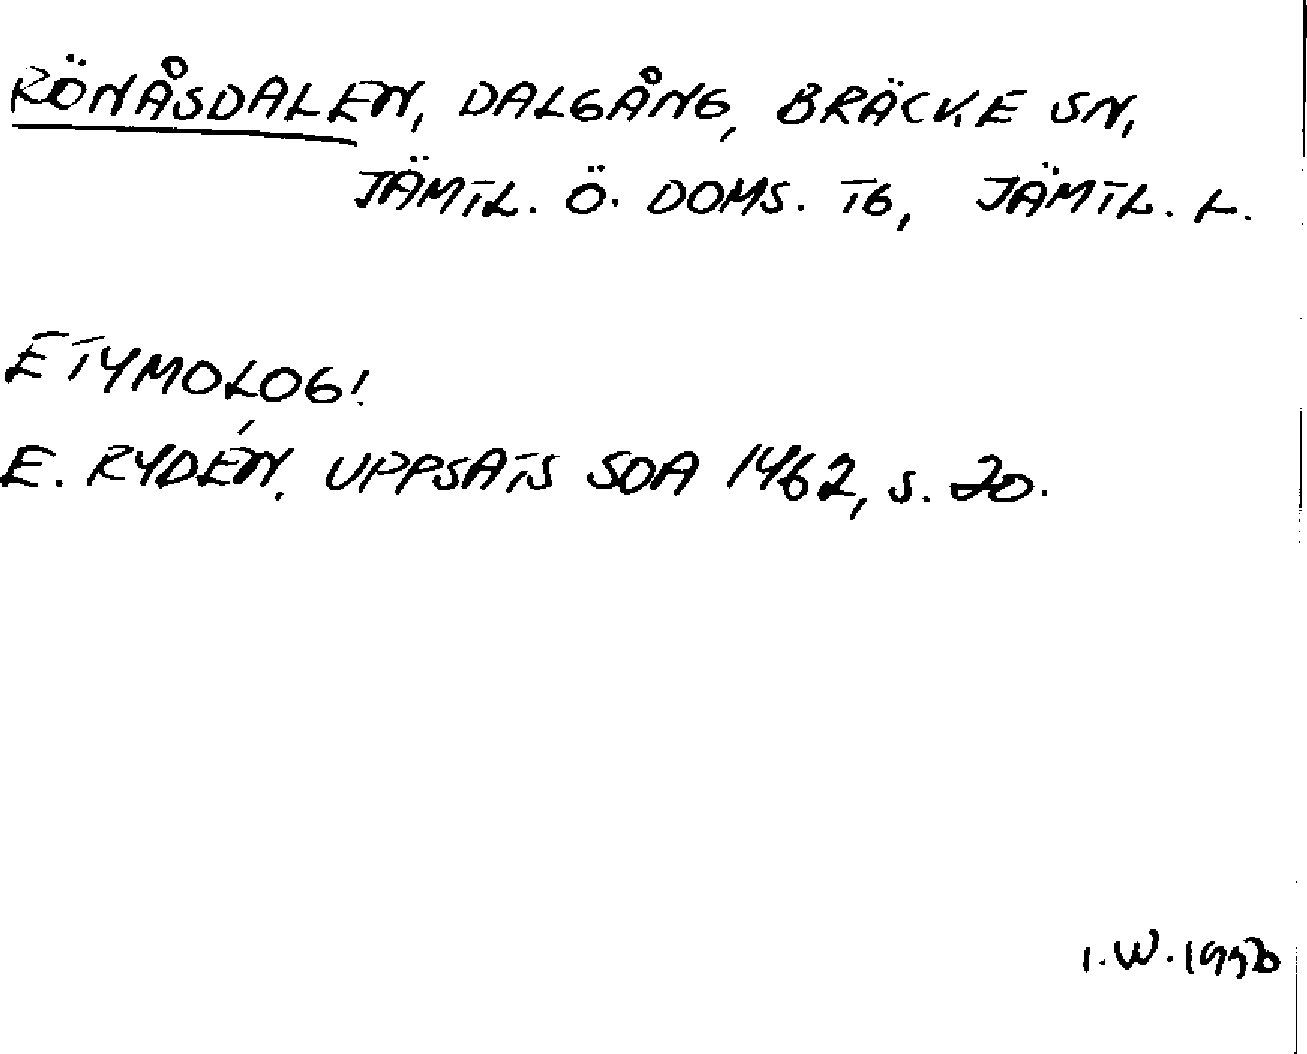 RÖNÅSDALEN, DALGÅNG, BRÄCKE SN,
JÄMTL. Ö. DOMS. TG, JÄMTL. L.
ETYMOLOG!
E. RYDÉN, UPPSATS SOA 1962, s. 20.
I.W.